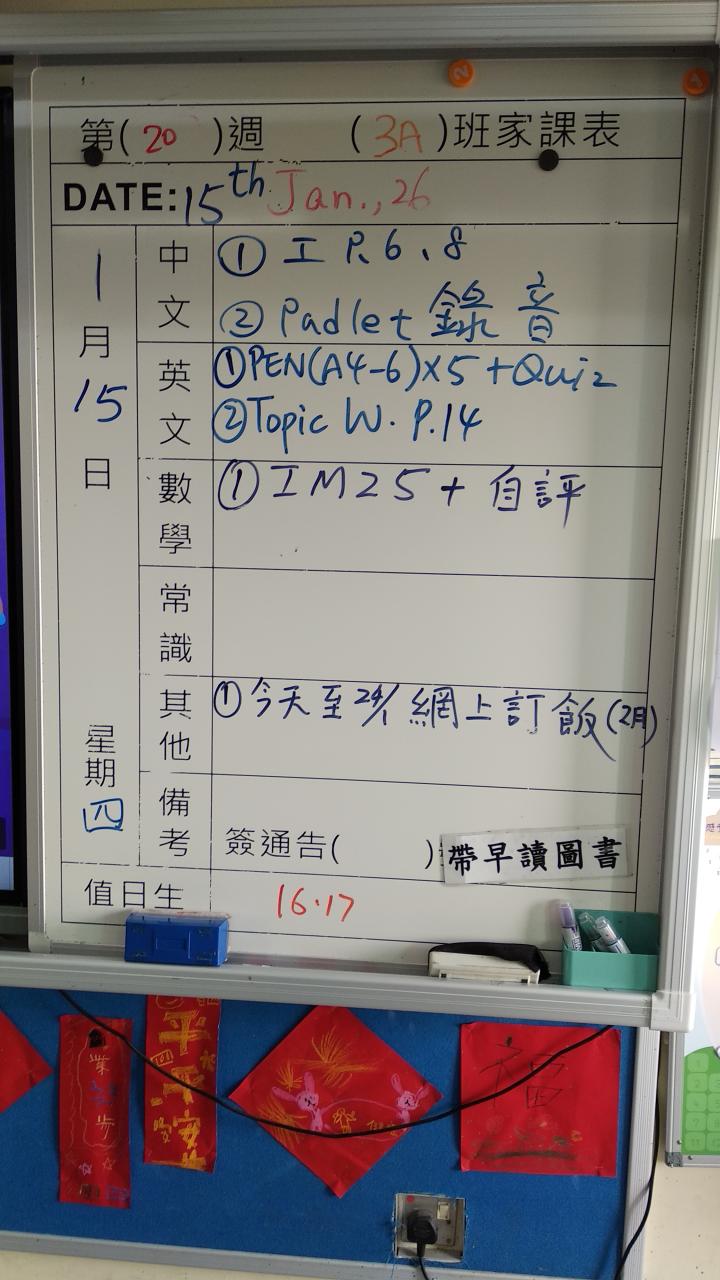 第( 20 )週 ( 3A )班家課表
DATE: 15th Jan., 26
1月15日
星期四
中文
① 工 P.6、8
② Padlet 錄音
英文
① PEN(A4-6)×5+Quiz
② Topic W. P.14
數學
① IM25+自評
常識
其他
① 今天至24/1 網上訂飯(2月)
備考
簽通告( )
帶早讀圖書
值日生
16.17
業
步
福